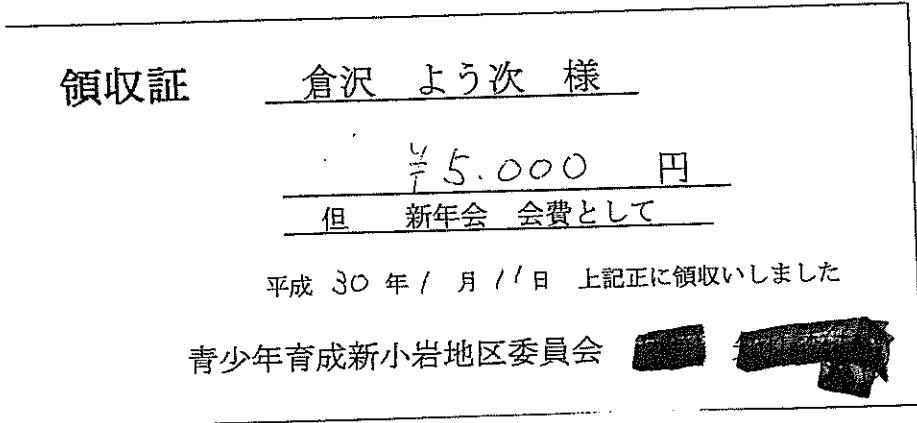 領収証 倉沢 よう次 様
¥5.000 円
但 新年会 会費として
平成 30 年 1 月 11 日 上記正に領収いしました
青少年育成新小岩地区委員会